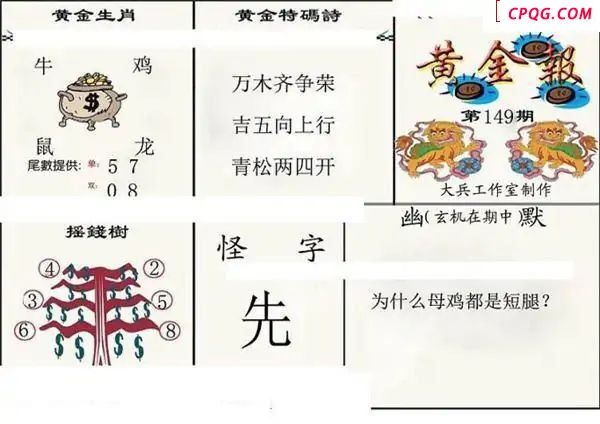 CPQG.COM
黄金生肖
牛 鸡
$
鼠 龙
尾數提供：单：5 7
双：0 8
黄金特碼詩
万木齐争荣
吉五向上行
青松两四开
黄金報
第149期
大兵工作室制作
摇錢樹
④ ②
③ ⑤
⑥ ⑧
$ $ $ $ $ $ $ $
怪 字
先
幽(玄机在期中)默
为什么母鸡都是短腿？